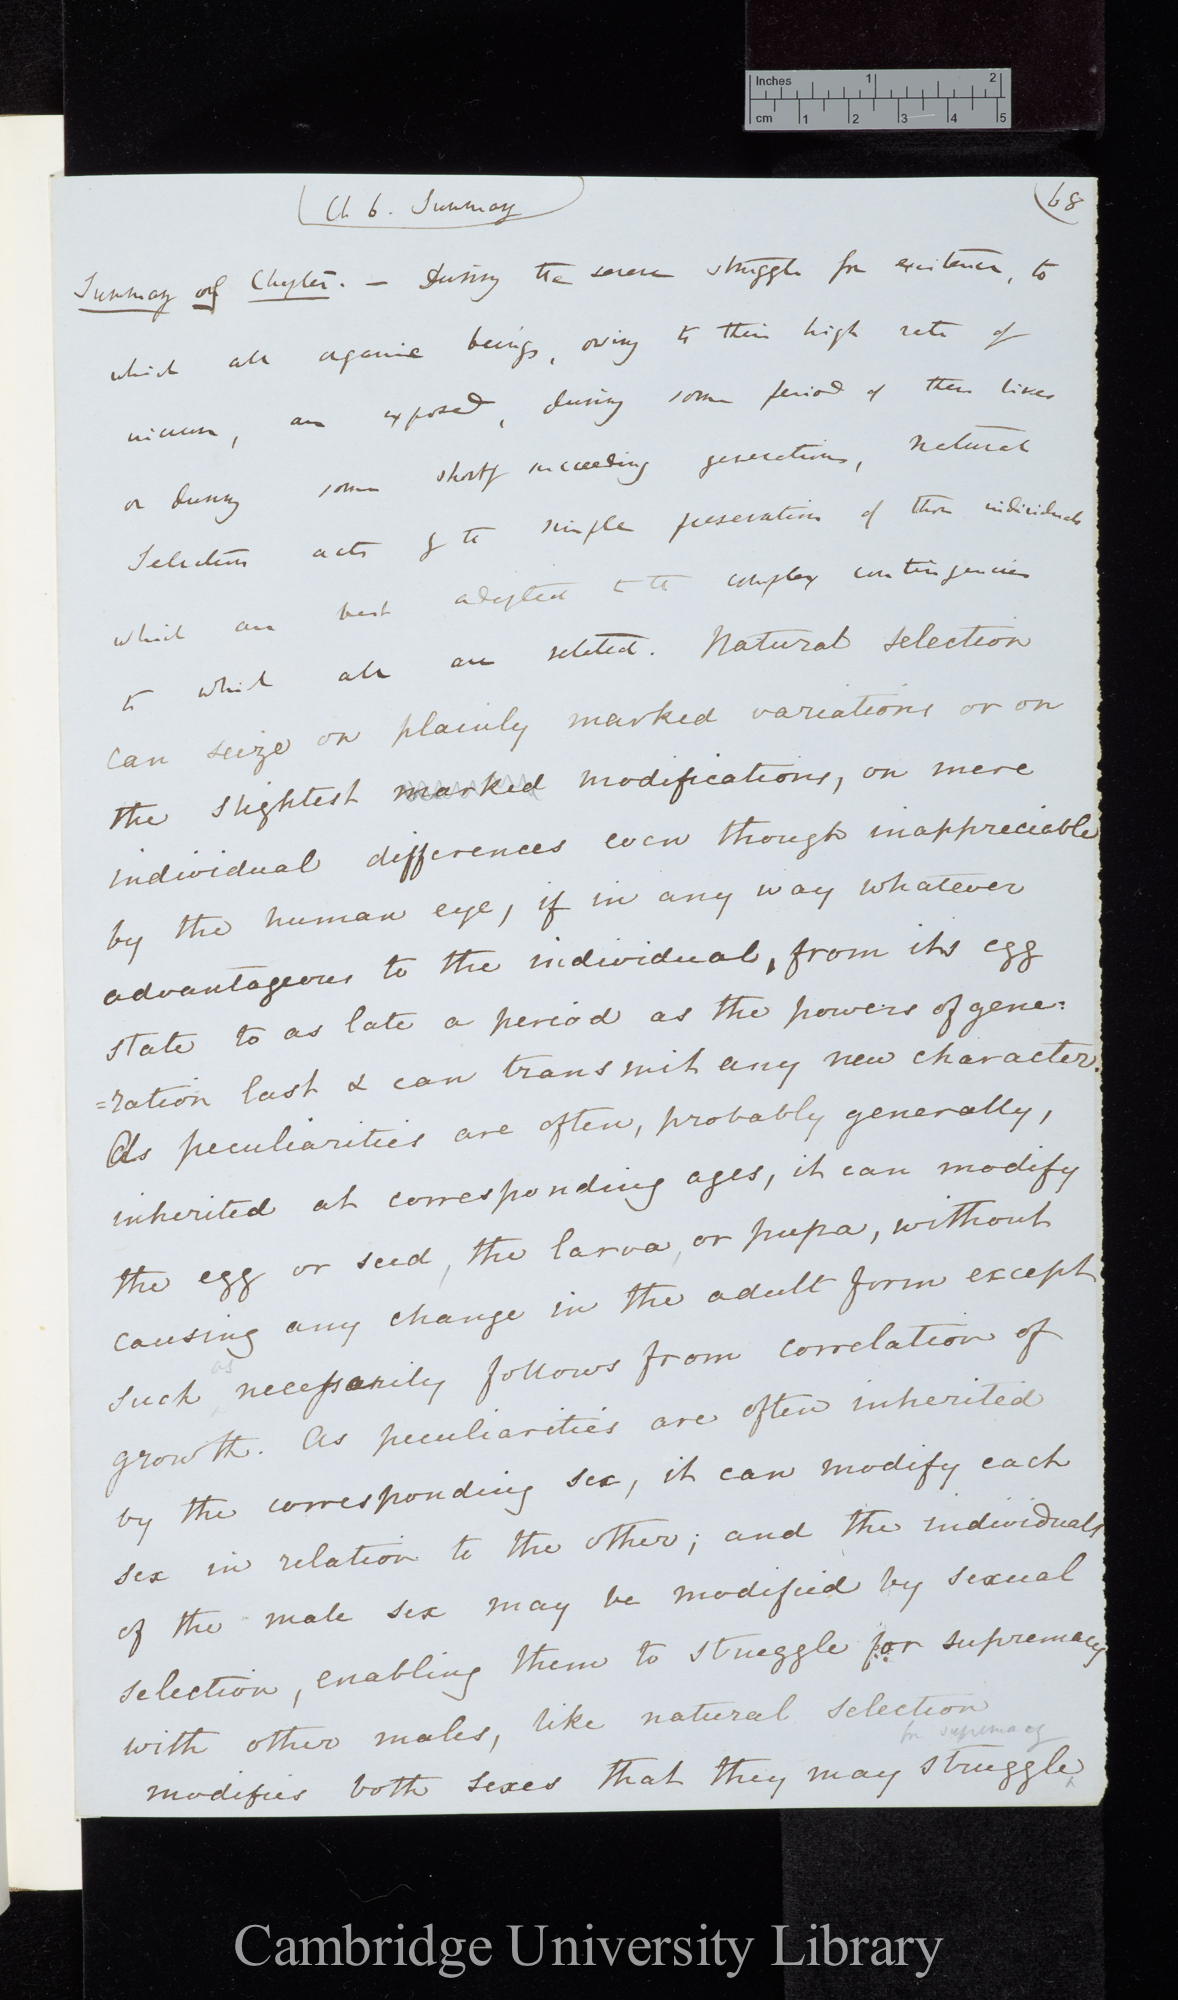 Inches 1 2
cm 1 2 3 4 5
Ch 6. Summary
68
Summary of Chapter. — During the severe struggle for existence, to
which all organic beings, owing to their high rate of
increase, are exposed, during some period of their lives
or during some shortly succeeding generations, natural
Selection acts by the simple preservation of those individuals
which are best adapted to the complex contingencies
to which all are related. Natural selection
can seize on plainly marked variations or on
the slightest marked modifications, on mere
individual differences even though inappreciable
by the human eye, if in any way whatever
advantageous to the individual, from its egg
state to as late a period as the powers of gene=
=ration last & can transmit any new character.
As peculiarities are often, probably generally,
inherited at corresponding ages, it can modify
the egg or seed, the larva, or pupa, without
causing any change in the adult form except
as
such necessarily follows from correlation of
growth. As peculiarities are often inherited
by the corresponding sex, it can modify each
sex in relation to the other; and the individuals
of the male sex may be modified by sexual
selection, enabling them to struggle for supremacy
with other males, like natural selection
for supremacy
modifies both sexes that they may struggle
Cambridge University Library